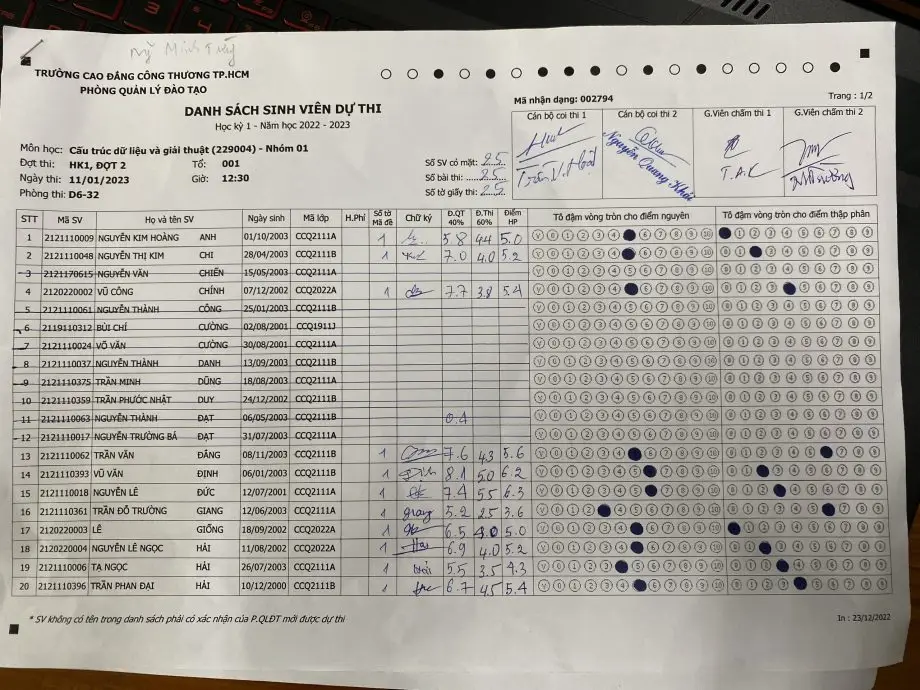 Ng Minh Thủy
TRƯỜNG CAO ĐẲNG CÔNG THƯƠNG TP.HCM
PHÒNG QUẢN LÝ ĐÀO TẠO
DANH SÁCH SINH VIÊN DỰ THI
Học kỳ 1 - Năm học 2022 - 2023
Mã nhận dạng: 002794
Trang : 1/2
Cán bộ coi thi 1 Cán bộ coi thi 2 G.Viên chấm thi 1 G.Viên chấm thi 2
Nguyễn Quang Khải T.A.C
Môn học: Cấu trúc dữ liệu và giải thuật (229004) - Nhóm 01
Đợt thi: HK1, ĐỢT 2 Tổ: 001
Ngày thi: 11/01/2023 Giờ: 12:30
Phòng thi: D6-32
Số SV có mặt: 25
Số bài thi: 25
Số tờ giấy thi: 25
STT Mã SV Họ và tên SV Ngày sinh Mã lớp H.Phí Số tờ Mã đề Chữ ký Đ.QT 40% Đ.Thi 60% Điểm HP Tô đậm vòng tròn cho điểm nguyên Tô đậm vòng tròn cho điểm thập phân
1 2121110009 NGUYỄN KIM HOÀNG ANH 01/10/2003 CCQ2111A 1 5.8 4.4 5.0
2 2121110048 NGUYỄN THỊ KIM CHI 28/04/2003 CCQ2111B 1 7.0 4.0 5.2
3 2121170615 NGUYỄN VĂN CHIẾN 15/05/2003 CCQ2111A
4 2120220002 VŨ CÔNG CHÍNH 07/12/2002 CCQ2022A 1 7.7 3.8 5.4
5 2121110061 NGUYỄN THÀNH CÔNG 25/01/2003 CCQ2111B
6 2119110312 BÙI CHÍ CƯỜNG 02/08/2001 CCQ1911J
7 2121110024 VÕ VĂN CƯỜNG 30/08/2001 CCQ2111A
8 2121110037 NGUYỄN THÀNH DANH 13/09/2003 CCQ2111B
9 2121110375 TRẦN MINH DŨNG 18/08/2003 CCQ2111A
10 2121110359 TRẦN PHƯỚC NHẬT DUY 24/12/2002 CCQ2111B
11 2121110063 NGUYỄN THÀNH ĐẠT 06/05/2003 CCQ2111B 0.4
12 2121110017 NGUYỄN TRƯỜNG BÁ ĐẠT 31/07/2003 CCQ2111A
13 2121110062 TRẦN VĂN ĐẲNG 08/11/2003 CCQ2111B 1 7.6 4.3 5.6
14 2121110393 VŨ VĂN ĐỊNH 06/01/2003 CCQ2111B 1 8.1 5.0 6.2
15 2121110018 NGUYỄN LÊ ĐỨC 12/07/2001 CCQ2111A 1 7.4 5.5 6.3
16 2121110361 TRẦN ĐỖ TRƯỜNG GIANG 12/06/2003 CCQ2111A 1 giang 5.2 2.5 3.6
17 2120220003 LÊ GIỎNG 18/09/2002 CCQ2022A 1 6.5 4.0 5.0
18 2120220004 NGUYỄN LÊ NGỌC HẢI 11/08/2002 CCQ2022A 1 6.9 4.0 5.2
19 2121110006 TẠ NGỌC HẢI 26/07/2003 CCQ2111A 1 5.5 3.5 4.3
20 2121110396 TRẦN PHAN ĐẠI HẢI 10/12/2000 CCQ2111B 1 6.7 4.5 5.4
* SV không có tên trong danh sách phải có xác nhận của P.QLĐT mới được dự thi
In : 23/12/2022